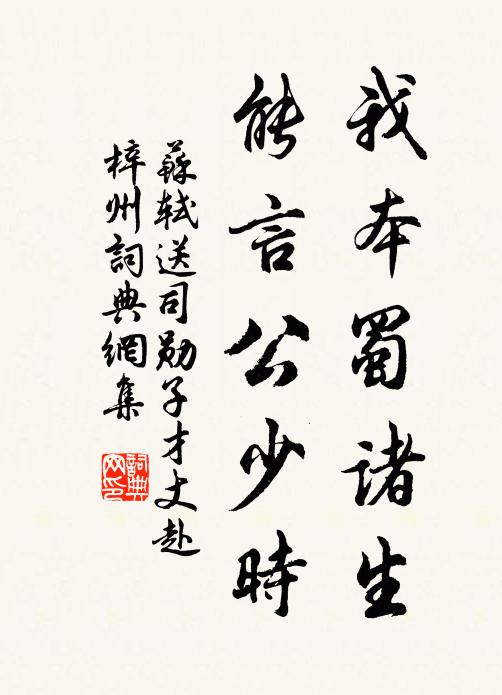 我本蜀諸生
能言公少時
蘇軾送司勋子才丈赴
梓州詞典網集
詞典网印